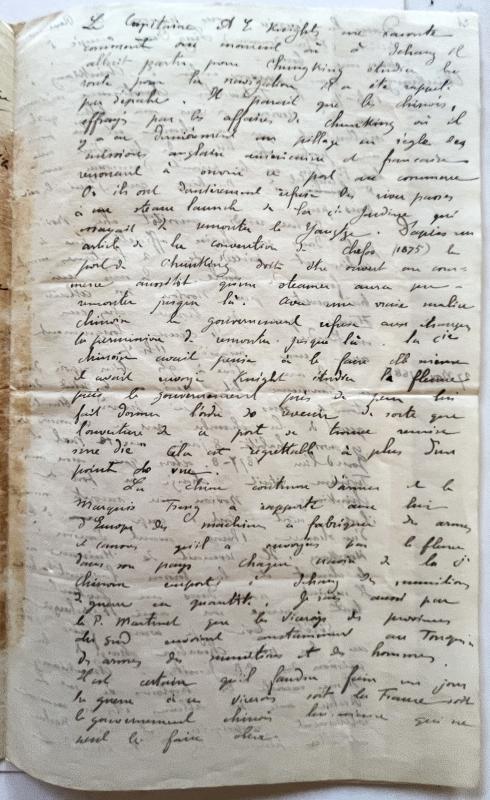 Le Capitaine A E Knights me raconte
comment au moment où à Ichang il
allait partir pour Chungking étudier la
route pour la navigation il a été rappelé
par dépêche. Il parait que les chinois,
effrayés par les affaires de Chunking où il
y a eu dernièrement un pillage en règle des
missions anglaise américaine et française
renoncent à ouvrir ce port au commerce
Or ils ont dernièrement refusé des river passes
à une steam launch de la Cie Jardine qui
essayait de remonter le Yangtze. D'après un
article de la convention de Chefoo (1875) le
port de Chunking doit être ouvert au com-
merce aussitôt qu'un steamer aura pu
remonter jusque là. Avec une vraie malice
chinoise le gouvernement refuse aux étrangers
la permission de remonter jusque là. La Cie
chinoise avait pensé à le faire elle même
et avait envoyé Knight étudier le fleuve
puis le gouvernement pris de peur lui
fait donner l'ordre de revenir de sorte que
l'ouverture de ce port se trouve remise
sine die. Cela est regrettable à plus d'un
point de vue.
La Chine continue d'armer et le
Marquis Tseng a rapporté avec lui
d'Europe des machines à fabriquer des armes
et canons qu'il a envoyées par le fleuve
dans son pays chaque navire de la Cie
chinoise emporte à Ichang des munitions
de guerre en quantité. Je sais aussi par
le P. Martinet que les vicerois des provinces
du sud envoient constamment au Tonquin
des armes des munitions et des hommes.
Il est certain qu'il faudra faire un jour
la guerre à ce viceroi soit la France soit
le gouvernement chinois lui-même qui ne
veut le faire